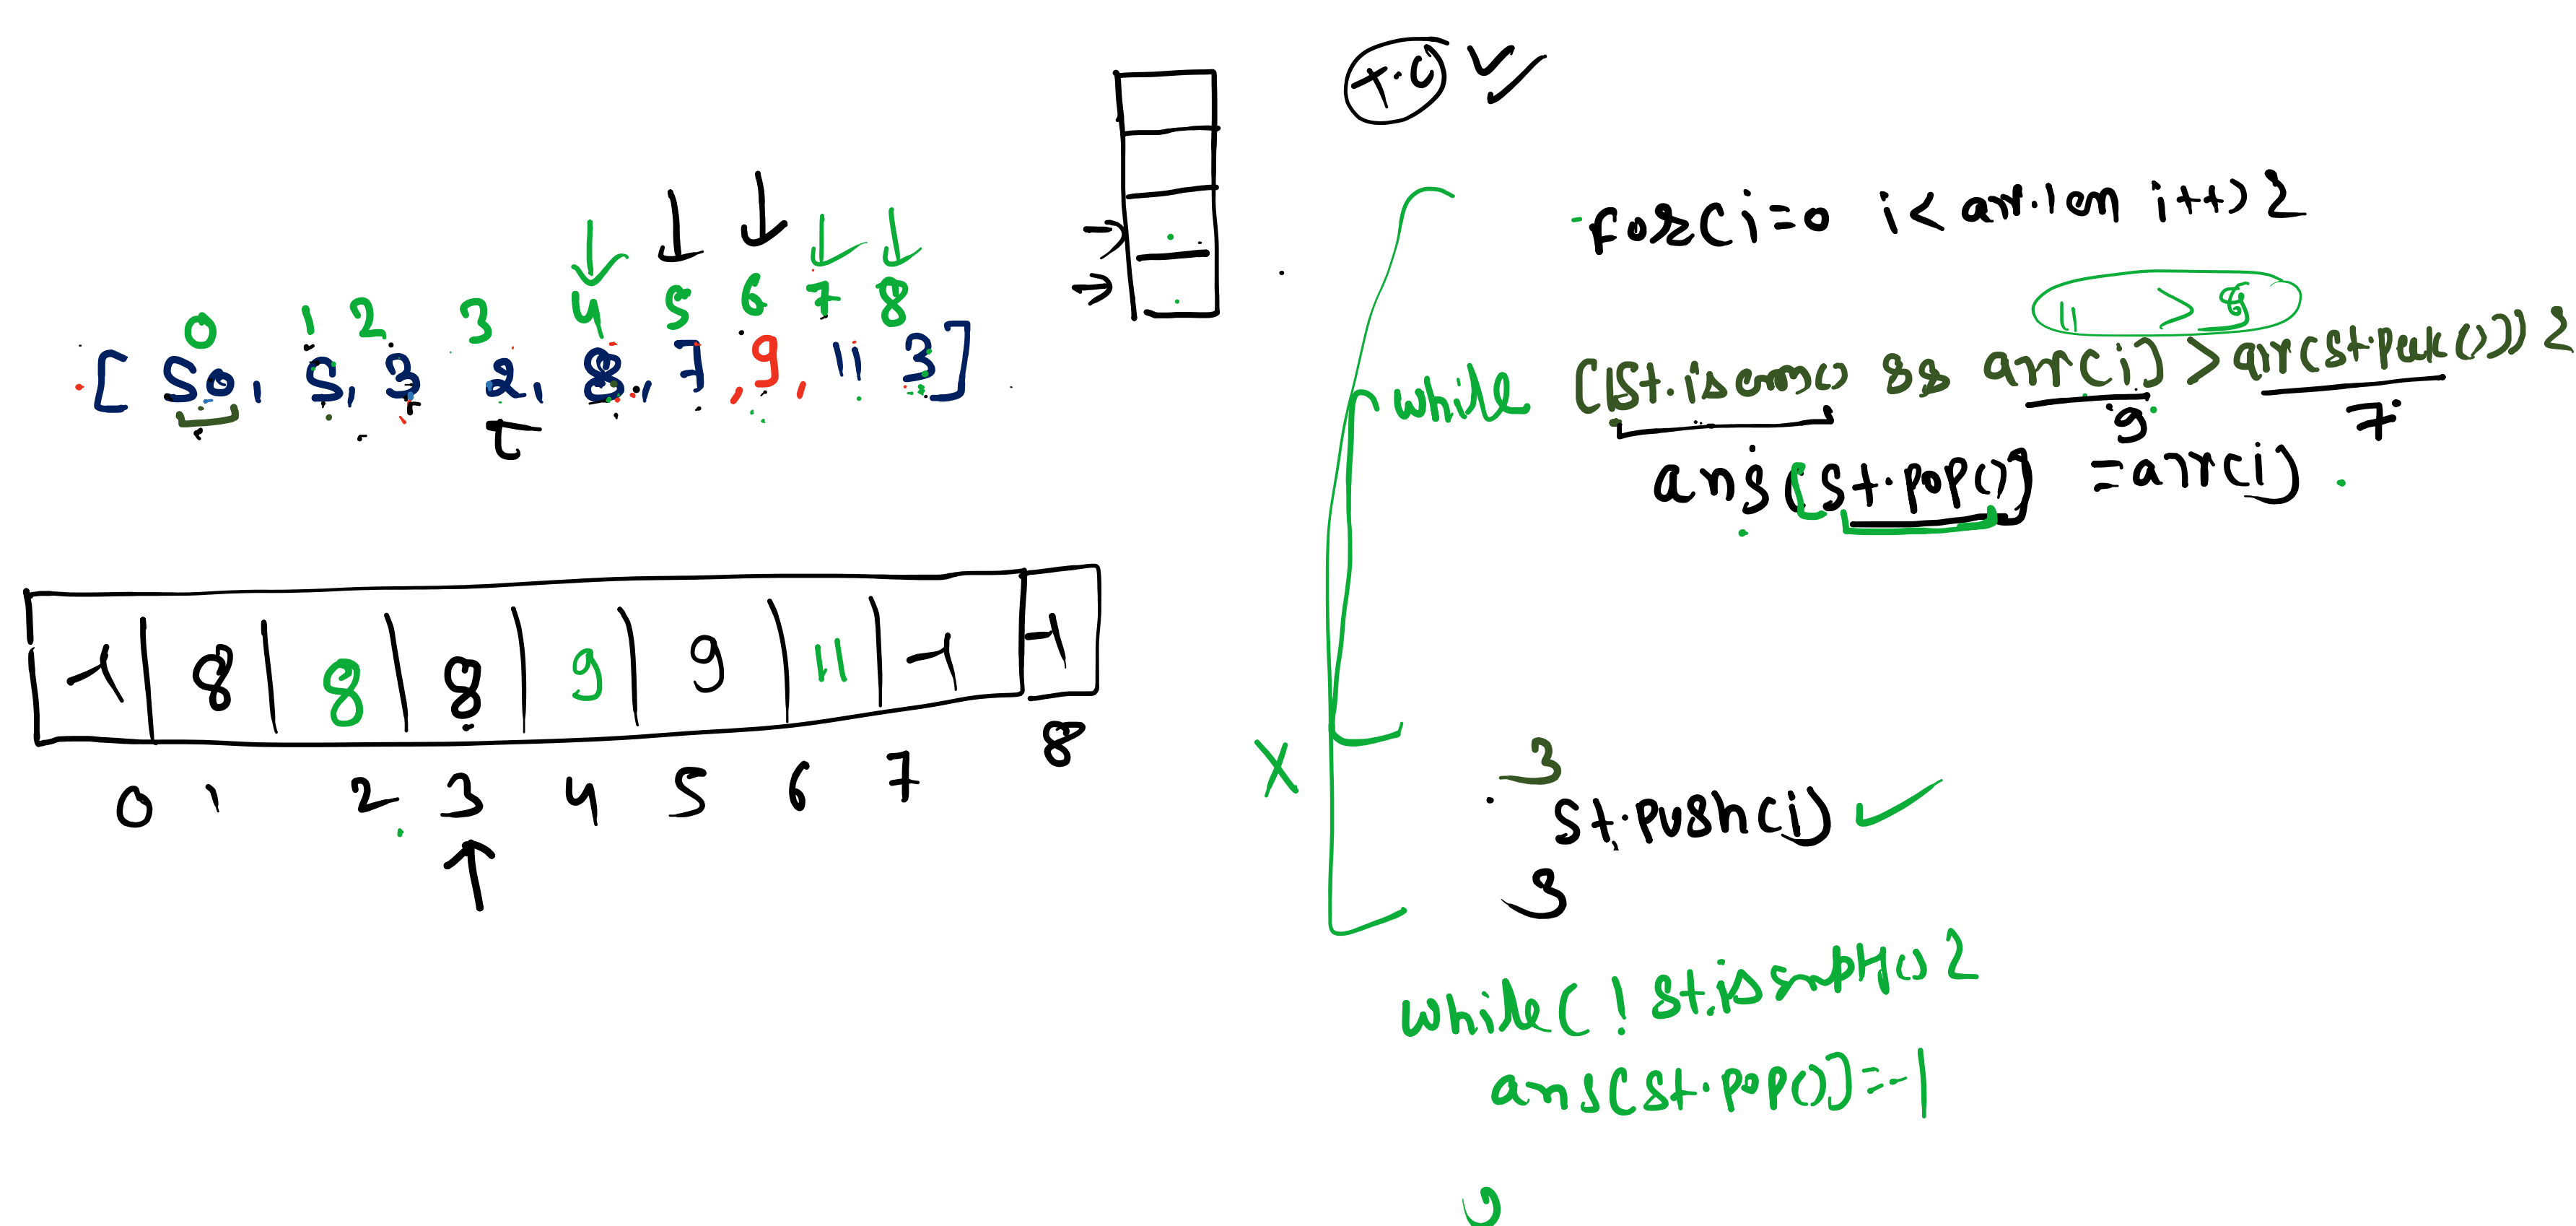 T.C
0 1 2 3 4 5 6 7 8
[ 50, 5, 3 2, 8, 7, 9, 11 3 ]
-1 8 8 8 9 9 11 -1 -1
0 1 2 3 4 5 6 7 8
for(i=0 i< arr.len i++) {
11 > 9
while (!st.isem() && arr(i] > arr(st.peek())) {
9 7
ans[st.pop()] =arr(i)
}
st.push(i)
}
X
while( ! st.isempty() {
ans[st.pop()]=-1